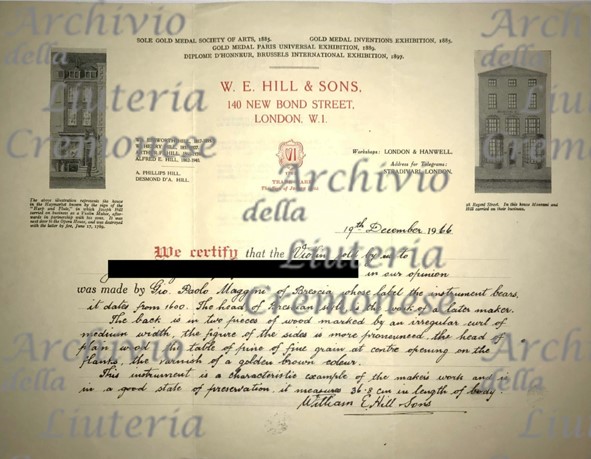 SOLE GOLD MEDAL SOCIETY OF ARTS, 1885. GOLD MEDAL INVENTIONS EXHIBITION, 1885.
GOLD MEDAL PARIS UNIVERSAL EXHIBITION, 1889.
DIPLOME D'HONNEUR, BRUSSELS INTERNATIONAL EXHIBITION, 1897.
W. E. HILL & SONS,
140 NEW BOND STREET,
LONDON, W.1.
ALFRED E. HILL,
A. PHILLIPS HILL,
DESMOND D'A. HILL.
Workshops: LONDON & HANWELL.
Address for Telegrams:
STRADIVARI, LONDON.
The above illustration represents the house
in the Haymarket known by the sign of the
"Harp and Flute," in which Joseph Hill
carried on business as a Violin Maker, after-
wards in partnership with his sons. It was
next door to the Opera House, and was destroyed
with the latter by fire, June 17, 1789.
38 Regent Street. In this house
Hill carried on their business.
19th December 1966
We certify that the Violin sold by us to
in our opinion
was made by Gio. Paolo Maggini of Brescia whose label the instrument bears,
it dates from 1600. The head of Brescian style is the work of a later maker.
The back is in two pieces of wood marked by an irregular curl of
medium width, the figure of the sides is more pronounced, the head of
plain wood, the table of pine of fine grain at centre opening on the
flanks, the varnish of a golden brown colour.
This instrument is a characteristic example of the maker's work and is
in a good state of preservation, it measures 36·8 cm in length of body.
William E. Hill & Sons
Archivio
della
Liuteria
Cremonese
Archivio
della
Liuteria
Cremonese
Archivio
della
Liuteria
Cremonese
Archivio
della
Liuteria
Archivio
della
Liuteria